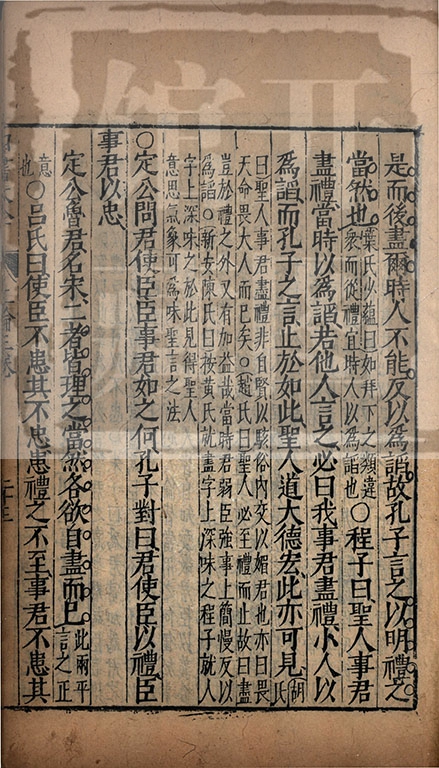 是而後盡爾時人不能反以爲謟故孔子言之以明禮之
當然也葉氏少蘊曰如拜下之類違衆而從禮宜時人以爲謟也○程子曰聖人事君
盡禮當時以爲謟若他人言之必曰我事君盡禮小人以
爲謟而孔子之言止於如此聖人道大德宏此亦可見胡氏
曰聖人事君盡禮非自賢以駭俗內交以媚君也亦曰畏
天命畏大人而已矣○趙氏曰聖人必至禮而止故曰盡
豈於禮之外又有加益哉當時君弱臣強事上簡慢反以
爲謟○新安陳氏曰按黃氏就盡字上深味之程子就人
字上深味之於此見得聖人
意思氣象可爲味聖言之法
○定公問君使臣臣事君如之何孔子對曰君使臣以禮臣
事君以忠
定公魯君名宋二者皆理之當然各欲自盡而已此兩平言之正
意也○呂氏曰使臣不患其不忠患禮之不至事君不患其